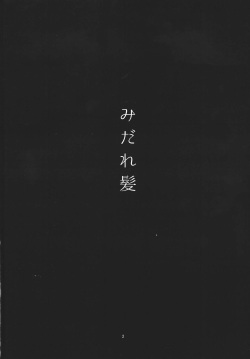 みだれ髪
2